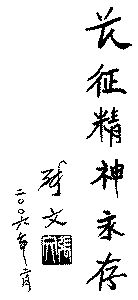 长征精神永存
文
二〇〇六年